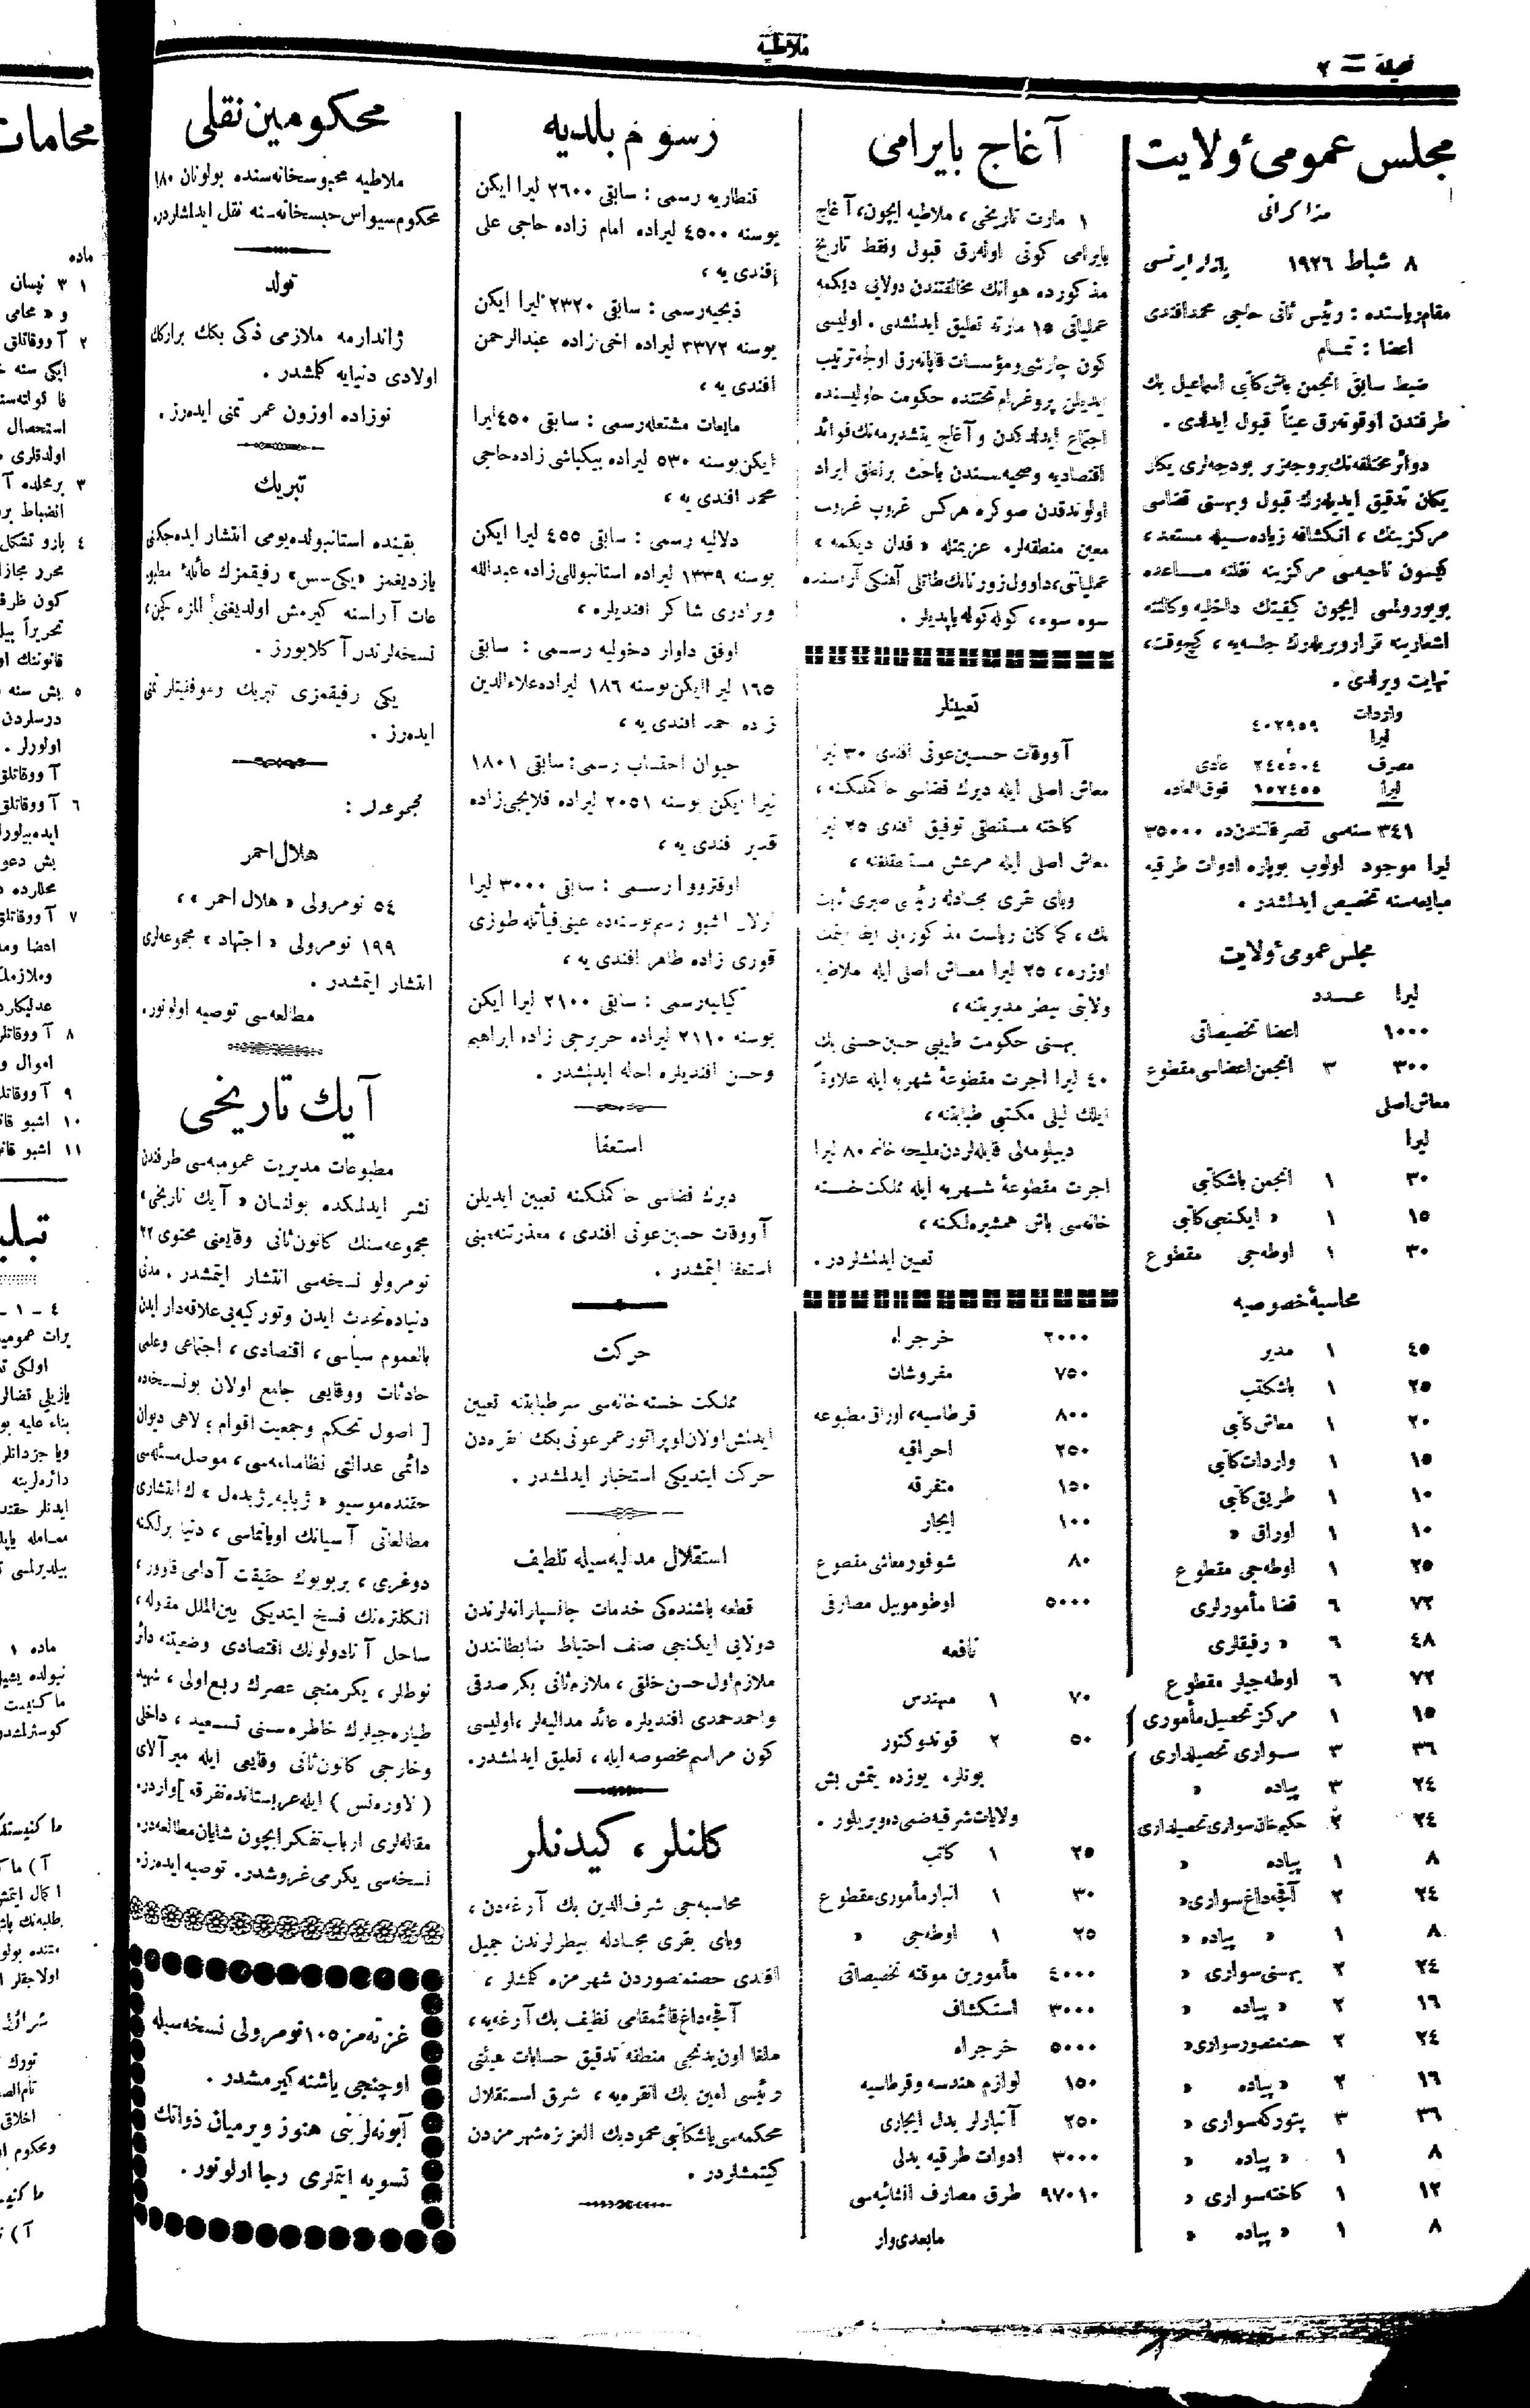 ملاطيه
صحيفه = ٢
مجلس عمومئ ولايت
مذاكراتى
٨ شباط ١٩٢٦ بازار ايرتسى
مقام رياستده : رئيس ثانى حاجى محمد افندى
اعضا : تمام
ضبط سابق انجمن باش كاتبى اسماعيل بك
طرفندن اوقونه رق عيناً قبول ايدلدى .
دوائر مختلفه نك بروجه زير بودجه لرى يكان
يكان تدقيق ايديله رك قبول وبهسنى قضاسى
مركزينك ، انكشافه زياده سيله مستعد ،
كيسون ناحيه سى مركزينه نقلنه مساعده
بويورولمسى ايچون كيفيتك داخليه وكالتنه
اشعارينه قرار ويريله رك جلسه يه ، كچ وقت ،
نهايت ويرلدى .
واردات ٤٠٢٩٥٩
ليرا
مصرف ٢٤٥٥٠٤ عادى
ليرا ١٥٧٤٥٥ فوق العاده
٣٤١ سنه سى تصرفاتندن ده ٣٥٠٠٠
ليرا موجود اولوب بوپاره ادوات طرقيه
مبايعه سنه تخصيص ايدلمشدر .
مجلس عمومئ ولايت
ليرا عدد
١٠٠٠ اعضا تخصيصاتى
٣٠٠ ٣ انجمن اعضاسى مقطوع
معاش اصلى
ليرا
٣٠ ١ انجمن باشكاتبى
١٥ ١ « ايكنجى كاتبى
٣٠ ١ اوطه جى مقطوع
محاسبۀ خصوصيه
٤٥ ١ مدير
٢٥ ١ باشكاتب
٢٠ ١ معاش كاتبى
١٥ ١ واردات كاتبى
١٠ ١ طريق كاتبى
١٠ ١ اوراق «
٢٥ ١ اوطه جى مقطوع
٧٢ ٦ قضا مأمورلرى
٤٨ ٦ « رفيقلرى
٧٢ ٦ اوطه جيلر مقطوع
١٥ ١ مركز تحصيل مأمورى
٣٦ ٣ سوارى تحصيلدارى
٢٤ ٣ پياده «
٢٤ ٢ حكيمخان سوارى تحصيلدارى
٨ ١ پياده «
٢٤ ٢ آقچه داغ سوارى «
٨ ١ « پياده «
٢٤ ٢ بهسنى سوارى «
١٦ ٢ « پياده «
٢٤ ٢ حصنمنصور سوارى «
١٦ ٢ « پياده «
٣٦ ٣ پتوركه سوارى «
٨ ١ « پياده «
١٢ ١ كاخته سوارى «
٨ ١ « پياده «
آغاج بايرامى
١ مارت تاريخى ، ملاطيه ايچون ، آغاج
بايرامى كونى اوله رق قبول وفقط تاريخ
مذكورده هوانك مخالفتندن دولايى ديكمه
عملياتى ١٥ مارته تعليق ايدلمشدى . اوليسى
كون چارشى ومؤسسات قپانه رق اولجه ترتيب
ايديلن پروغرام تحتنده حكومت حاوليسنده
اجتماع ايدلدكدن و آغاج يتشديرمه نك فوائد
اقتصاديه وصحيه سندن باحث بر نطق ايراد
اولوندقدن صوكره هركس غروپ غروپ
معين منطقه لره عزيمتله « فدان ديكمه »
عملياتى ، داوول زورنانك طاتلى آهنكى آراسنده
سوه سوه ، كوله كوله ياپديلر .
تعيينلر
آووقات حسين عونى افندى ٣٠ ليرا
معاش اصلى ايله ديرك قضاسى حاكملكنه ،
كاخته مستنطقى توفيق افندى ٢٥ ليرا
معاش اصلى ايله مرعش مستنطقلغنه ،
وباى بقرى مجادله رئيسى صبرى ثابت
بك ، كماكان رياست مذكوره يى ايفا ايتمك
اوزره ، ٢٥ ليرا معاش اصلى ايله ملاطيه
ولايتى بيطر مديريتنه ،
بهسنى حكومت طبيبى حسين حسنى بك
٤٠ ليرا اجرت مقطوعۀ شهريه ايله علاوةً
ايلك ليلى مكتبى طبابتنه ،
ديپلومه لى قابله لردن مليحه خانم ٨٠ ليرا
اجرت مقطوعۀ شهريه ايله مملكت خسته
خانه سى باش همشيره لكنه ،
تعيين ايدلمشلردر .
٢٠٠٠ خرجراه
٧٥٠ مفروشات
٨٠٠ قرطاسيه ، اوراق مطبوعه
٢٥٠ احراقيه
١٥٠ متفرقه
١٠٠ ايجار
٨٠ شوفور معاشى مقطوع
٥٠٠٠ اوطوموبيل مصارفى
نافعه
٧٠ ١ مهندس
٥٠ ٢ قوندوكتور
بونلره يوزده يتمش بش
ولايات شرقيه ضمى ده ويريلور .
٢٥ ١ كاتب
٣٠ ١ انبار مأمورى مقطوع
٢٥ ١ اوطه جى «
٤٠٠٠ مأمورين موقته تخصيصاتى
٣٠٠٠ استكشاف
٥٠٠٠ خرجراه
١٥٠ لوازم هندسه وقرطاسيه
٢٥٠ آنبارلر بدل ايجارى
٣٠٠٠ ادوات طرقيه بدلى
٩٧٠١٠ طرق مصارف انشائيه سى
مابعدى وار
رسوم بلديه
قنطاريه رسمى : سابقى ٢٦٠٠ ليرا ايكن
بوسنه ٤٥٠٠ ليراده امام زاده حاجى على
افندى يه ،
ذبحيه رسمى : سابقى ٢٣٢٠ ليرا ايكن
بوسنه ٣٣٧٢ ليراده اخى زاده عبدالرحمن
افندى يه ،
مايعات مشتعله رسمى : سابقى ٤٥٠ ليرا
ايكن بوسنه ٥٣٠ ليراده بيكباشى زاده حاجى
محمد افندى يه ،
دلاليه رسمى : سابقى ٤٥٥ ليرا ايكن
بوسنه ١٣٣٩ ليراده استانبوللى زاده عبدالله
وبرادرى شاكر افنديلره ،
اوفق داوار دخوليه رسمى : سابقى
١٦٥ ليرا ايكن بوسنه ١٨٦ ليراده علاءالدين
زاده حمد افندى يه ،
حيوان احتساب رسمى : سابقى ١٨٠١
ليرا ايكن بوسنه ٢٠٥١ ليراده قلايجى زاده
قدير افندى يه ،
اوقتروا رسمى : سابقى ٣٠٠٠ ليرا
اولان اشبو رسم بوسنه ده عينى فيأتله طوزى
قورى زاده طاهر افندى يه ،
كياليه رسمى : سابقى ٢١٠٠ ليرا ايكن
بوسنه ٢١١٠ ليراده حريرجى زاده ابراهيم
وحسن افنديلره احاله ايدلمشدر .
استعفا
ديرك قضاسى حاكملكنه تعيين ايديلن
آووقات حسين عونى افندى ، معذرتنه مبنى
استعفا ايتمشدر .
حركت
مملكت خسته خانه سى سرطبابتنه تعيين
ايدلمش اولان اوپراتور عمر عونى بكك انقره دن
حركت ايتديكى استخبار ايدلمشدر .
استقلال مداليه سيله تلطيف
قطعه باشنده كى خدمات جانسپارانه لرندن
دولايى ايكنجى صنف احتياط ضابطانندن
ملازم اول حسن خلقى ، ملازم ثانى بكر صدقى
واحمد حمدى افنديلره عائد مداليه لر ، اوليسى
كون مراسم مخصوصه ايله ، تعليق ايدلمشدر .
كلنلر ، كيدنلر
محاسبه جى شرف الدين بك آرغه دن ،
وباى بقرى مجادله بيطرلرندن جميل
افندى حصنمنصوردن شهرمزه كلمشلر ،
آقچه داغ قائممقامى نظيف بك آرغه يه ،
ملغا اون يدنجى منطقه تدقيق حسابات هيئتى
رئيسى امين بك انقره يه ، شرق استقلال
محكمه سى باشكاتبى محمود بك العزيزه شهرمزدن
كيتمشلردر .
محكومين نقلى
ملاطيه محبوسخانه سنده بولونان ١٨٠
محكوم سيواس حبسخانه سنه نقل ايدلمشلردر .
تولد
ژاندارمه ملازمى ذكى بكك بر اركك
اولادى دنيايه كلمشدر .
نوزاده اوزون عمر تمنى ايده رز .
تبريك
يقينده استانبولده يومى انتشار ايده جكنى
يازديغمز « يكى سس » رفيقمزك عائله مطبو
عات آراسنه كيرمش اولديغنى المزه كچن
نسخه لرندن آكلايورز .
يكى رفيقمزى تبريك وموفقيتلر تمنى
ايده رز .
مجموعه لر :
هلال احمر
٥٤ نومرولى « هلال احمر » ،
١٩٩ نومرولى « اجتهاد » مجموعه لرى
انتشار ايتمشدر .
مطالعه سى توصيه اولونور .
آيك تاريخى
مطبوعات مديريت عموميه سى طرفندن
نشر ايدلمكده بولنان « آيك تاريخى »
مجموعه سنك كانون ثانى وقايعنى محتوى ٢٢
نومرولو نسخه سى انتشار ايتمشدر . مدنى
دنياده تحدث ايدن وتوركيه يى علاقه دار ايدن
بالعموم سياسى ، اقتصادى ، اجتماعى وعلمى
حادثات ووقايعى جامع اولان بونسخه ده
[ اصول تحكم وجمعيت اقوام ؛ لاهى ديوان
دائمى عدالتى نظامنامه سى ، موصل مسئله سى
حقنده موسيو « ژيلبه ر ژيده ل » ك انتشارى
مطالعاتى آسيانك اويانماسى ، دنيا برلكنه
دوغرى ، بر بويوك حقيقت آدامى قوور ،
انكلتره نك فسخ ايتديكى بين الملل مقوله ،
ساحل آنادولونك اقتصادى وضعيتنه دائر
نوطلر ، يكرمنجى عصرك ربع اولى ، شهيد
طياره جيلرك خاطره سنى تسعيد ، داخلى
وخارجى كانون ثانى وقايعى ايله ميرآلاى
( لاوره نس ) ايله عربستانده تفرقه ] واردر .
مقاله لرى ارباب تفكر ايچون شايان مطالعه در .
نسخه سى يكرمى غروشدر . توصيه ايده رز .
غزته مز ١٠٥ نومرولى نسخه سيله
اوچنجى ياشنه كيرمشدر .
آبونه لرينى هنوز ويرميان ذواتك
تسويه ايتملرى رجا اولونور .